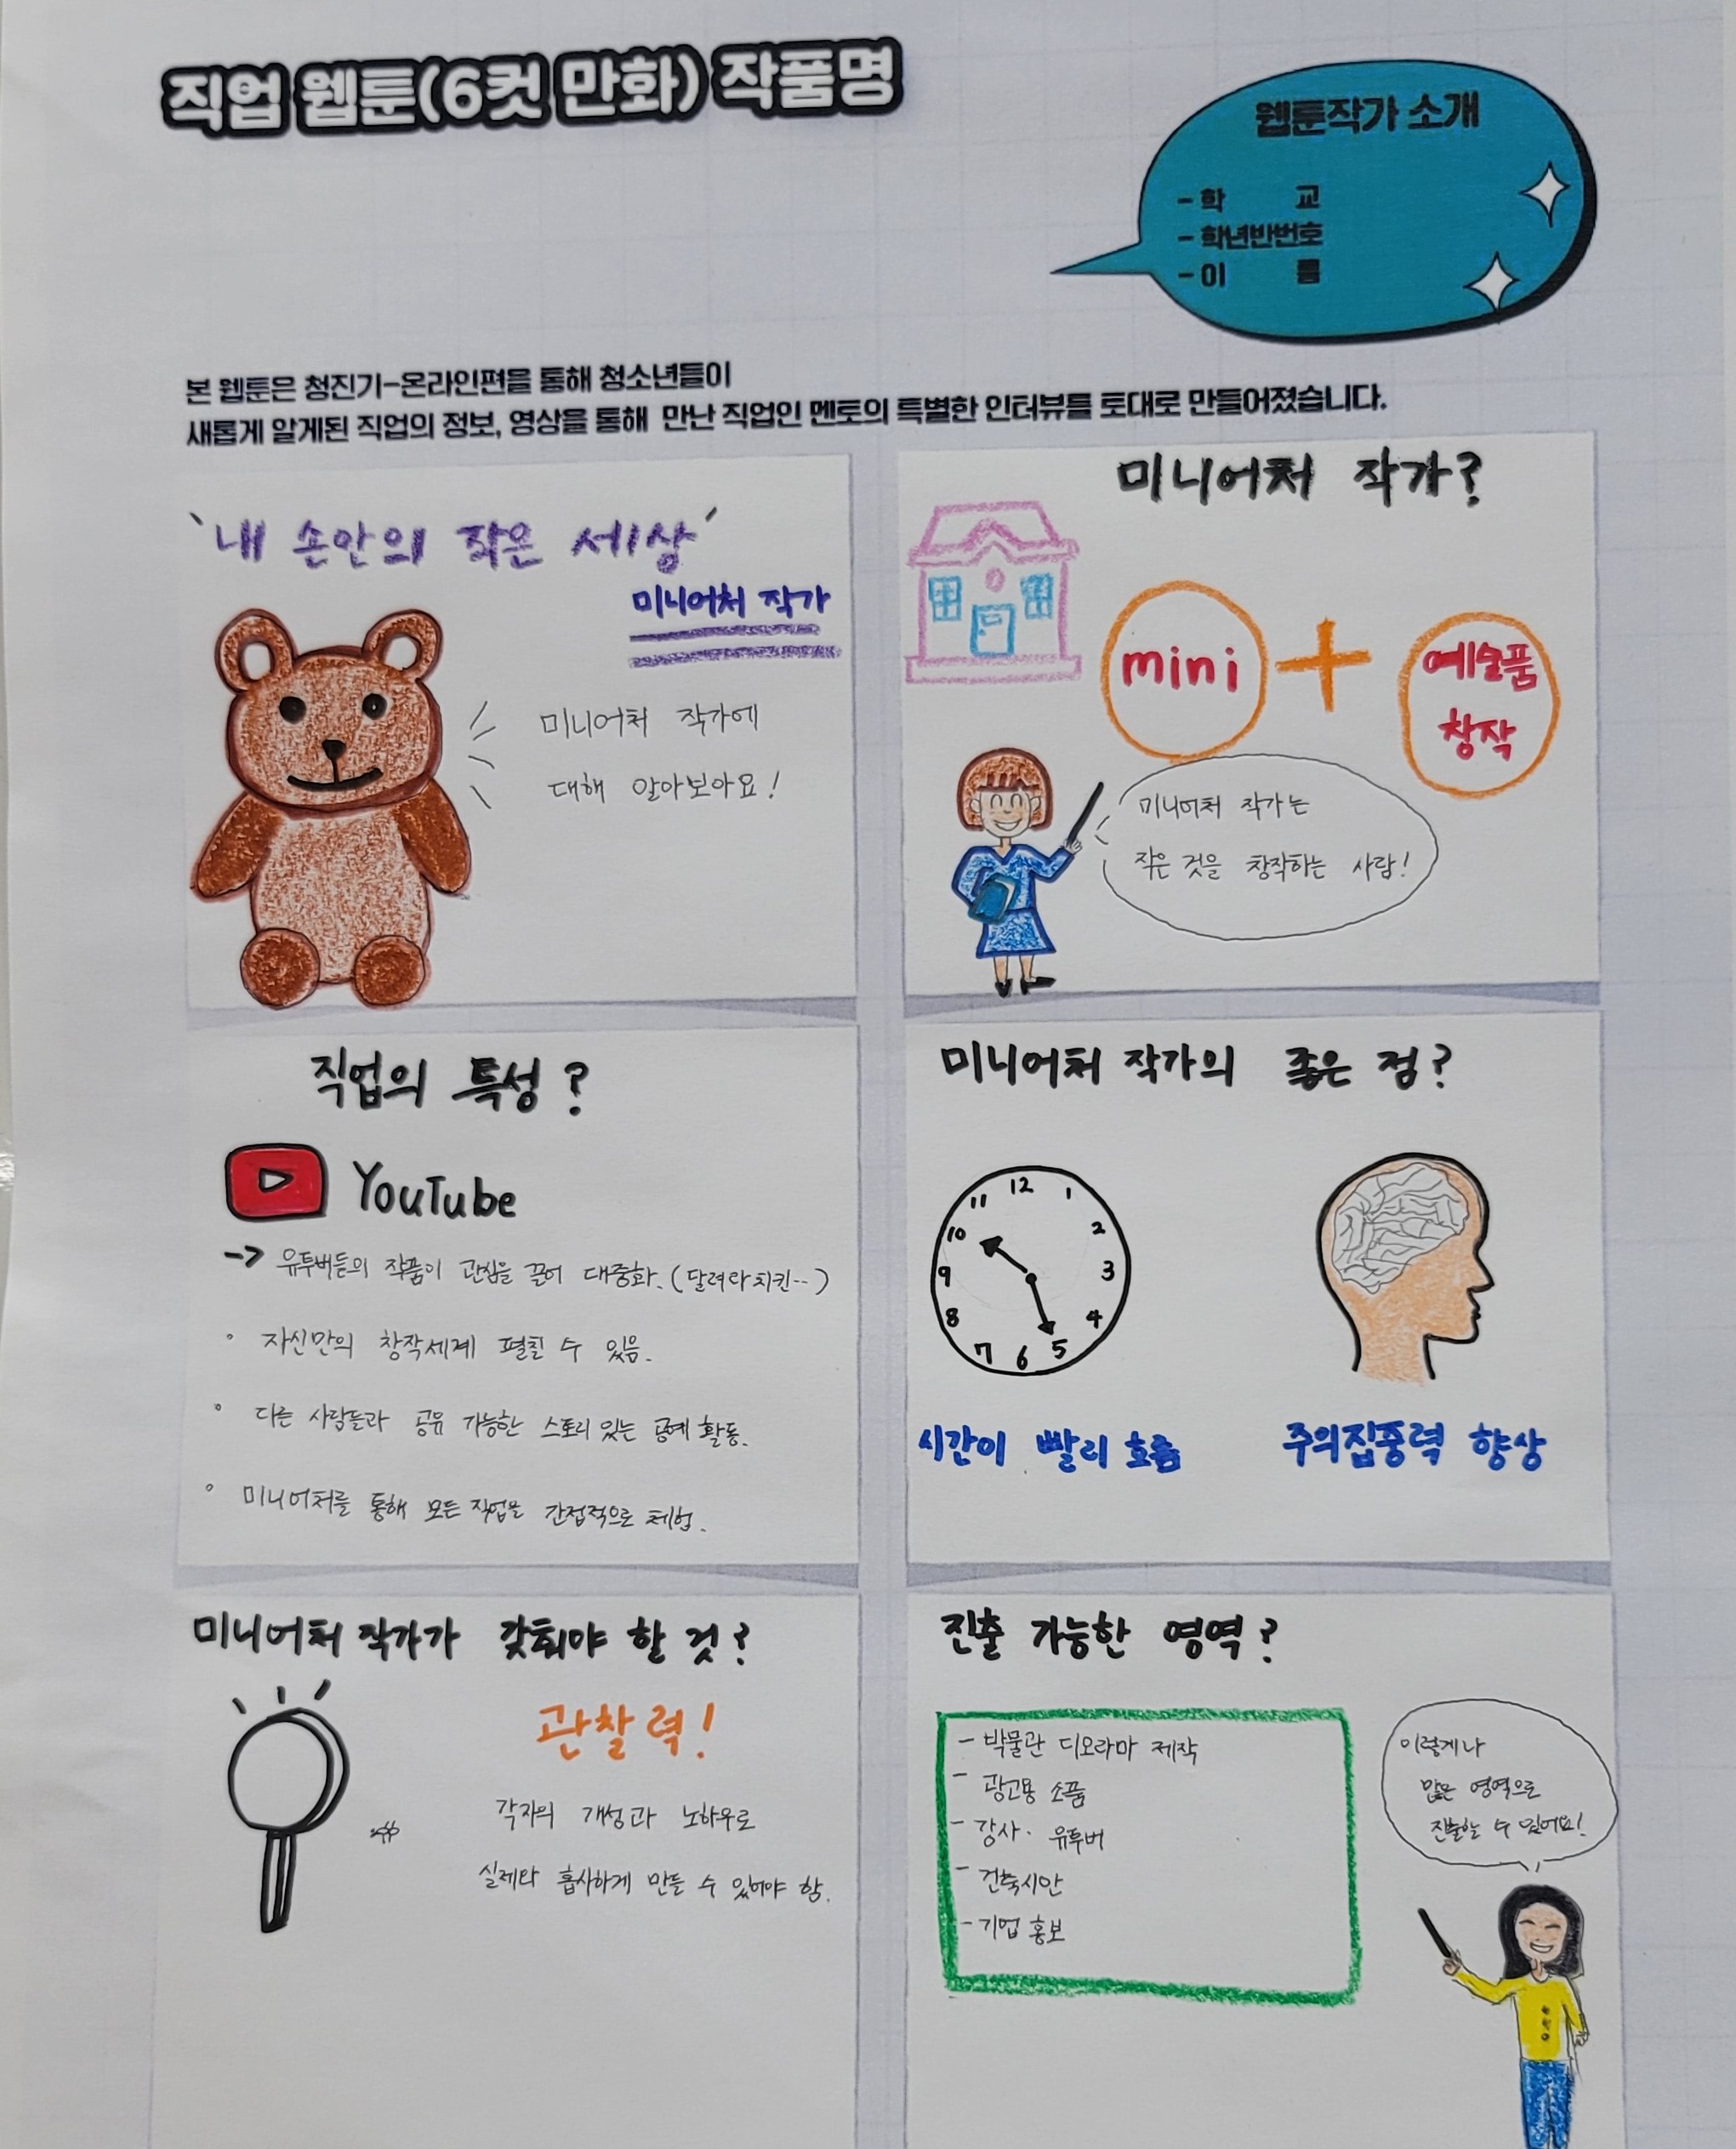 직업 웹툰(6컷 만화) 작품명
웹툰작가 소개
- 학 교
- 학년반번호
- 이 름
본 웹툰은 청진기-온라인편을 통해 청소년들이
새롭게 알게된 직업의 정보, 영상을 통해 만난 직업인 멘토의 특별한 인터뷰를 토대로 만들어졌습니다.
'내 손안의 작은 세상'
미니어처 작가
미니어처 작가에
대해 알아보아요!
미니어처 작가?
mini + 예술품
창작
미니어처 작가는
작은 것을 창작하는 사람!
직업의 특성?
YouTube
-> 유투버들의 작품이 관심을 끌어 대중화. (달려라치킨..)
◦ 자신만의 창작세계 펼칠 수 있음.
◦ 다른 사람들과 공유 가능한 스토리 있는 공예 활동.
◦ 미니어처를 통해 모든 직업을 간접적으로 체험.
미니어처 작가의 좋은 점?
12
11 1
10 2
9 3
8 4
7 6 5
시간이 빨리 흐름
주의집중력 향상
미니어처 작가가 갖춰야 할 것?
관찰력!
각자의 개성과 노하우로
실제와 흡사하게 만들 수 있어야 함.
진출 가능한 영역?
- 박물관 디오라마 제작
- 광고용 소품
- 강사· 유투버
- 건축시안
- 기업 홍보
이렇게나
많은 영역으로
진출할 수 있어요!